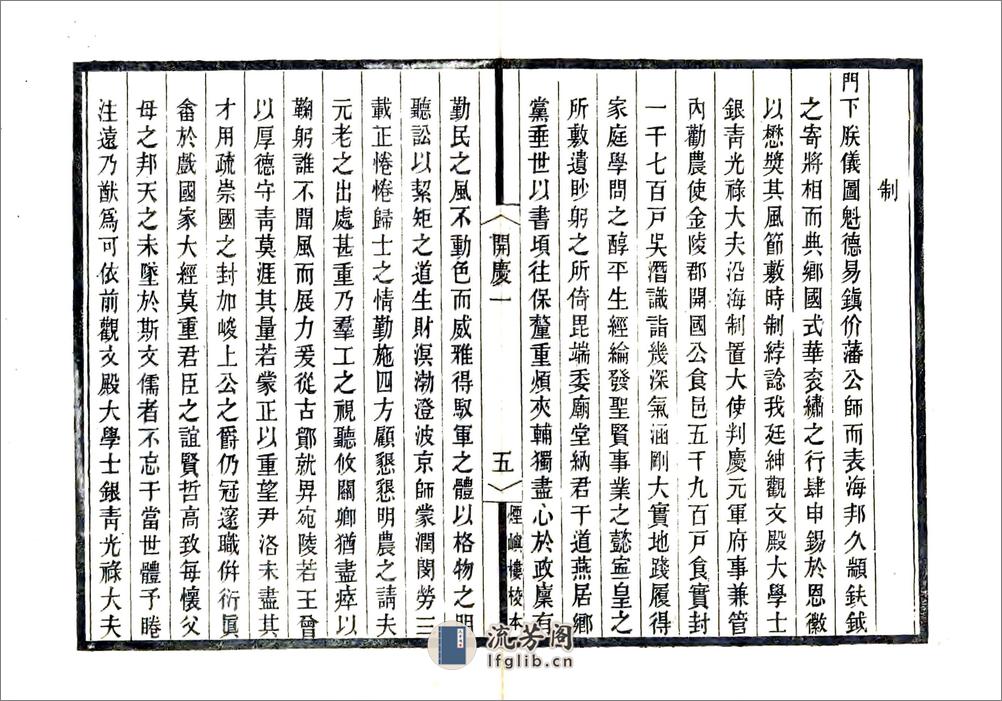 制
門下朕儀圖魁德易鎮价藩公師而表海邦久顓鈇鉞
之寄將相而典鄉國式華衮繡之行肆申錫於恩徽
以懋奬其風節敷時制綍諗我廷紳觀文殿大學士
銀靑光祿大夫沿海制置大使判慶元軍府事兼管
內勸農使金陵郡開國公食邑五千九百戸食實封
一千七百戸吳潛識詣幾深氣涵剛大實地踐履得
家庭學問之醇平生經綸發聖賢事業之懿寧皇之
所敷遺眇躬之所倚毘端委廟堂納君于道燕居鄉
黨垂世以書頃往保釐重煩夾輔獨盡心於政廩有
開慶一
五
煙嶼樓校本
勤民之風不動色而威雅得馭軍之體以格物之明
聽訟以絜矩之道生財溟渤澄波京師蒙潤閔勞三
載正惓惓歸士之情勤施四方顧懇懇明農之請夫
元老之出處甚重乃羣工之視聽攸關卿猶盡瘁以
鞠躬誰不聞風而展力爰從古鄮就畀宛陵若王曾
以厚德守靑莫涯其量若蒙正以重望尹洛未盡其
才用疏崇國之封加峻上公之爵仍冠邃職倂衍眞
畬於戲國家大經莫重君臣之誼賢哲高致每懷父
母之邦天之未墜於斯文儒者不忘于當世體予睠
注遠乃猷爲可依前觀文殿大學士銀靑光祿大夫
流芳阁
lfglib.cn